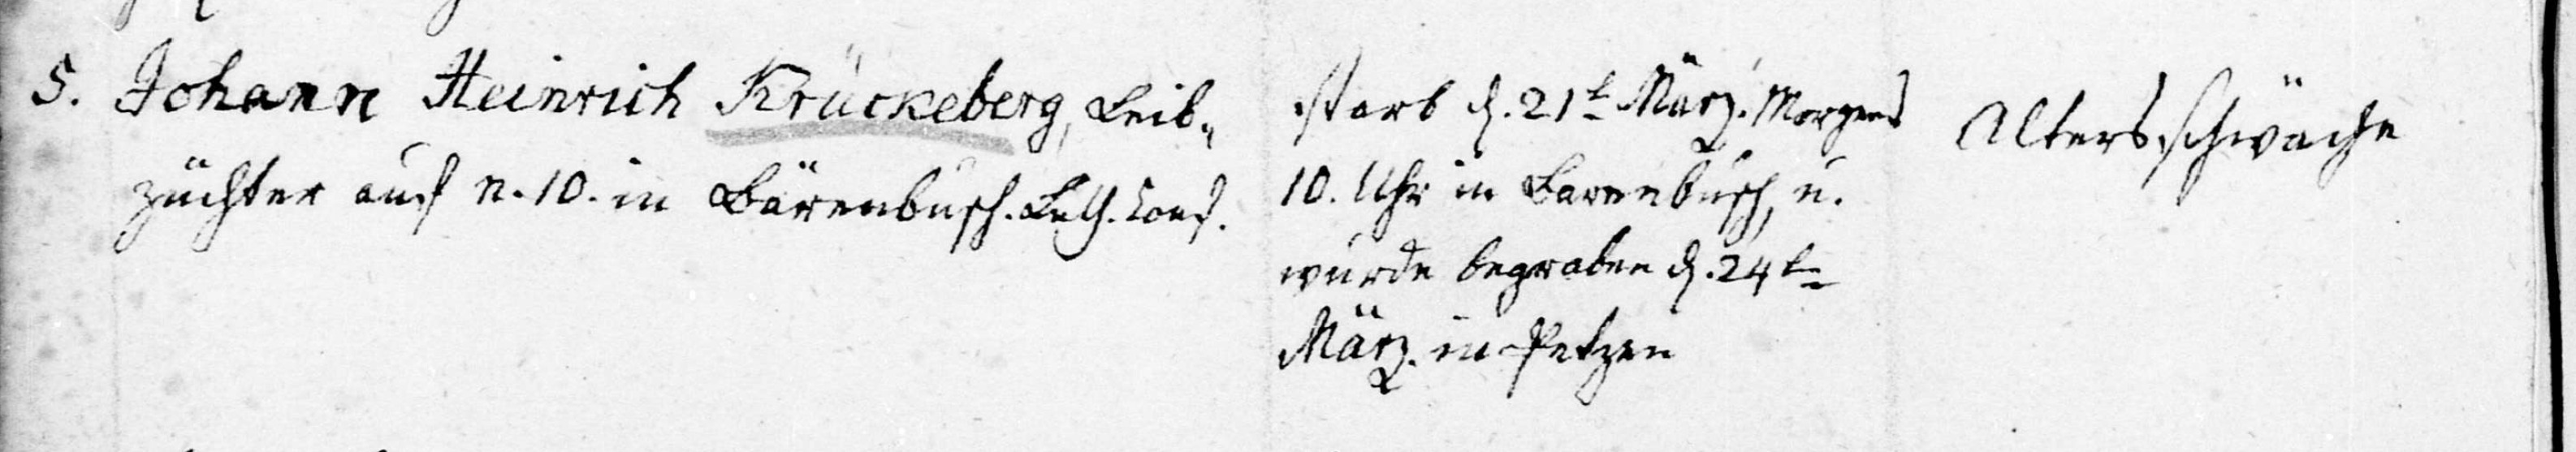 5. Johann Heinrich Krückeberg, Leib-
züchter auf n. 10. in Bärenbusch. Luth. Conf.
starb d. 21t März. Morgens
10. Uhr in Barenbusch, u.
wurde begraben d. 24t
März. in Petzen
Altersschwäche